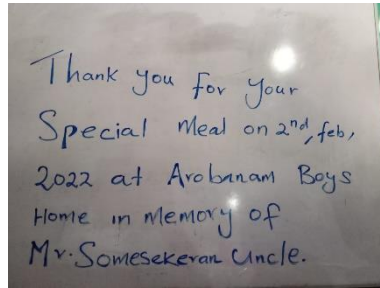 Thank you for your
Special Meal on 2nd, feb,
2022 at Arobanam Boys
Home in memory of
Mr. Somesekeran Uncle.